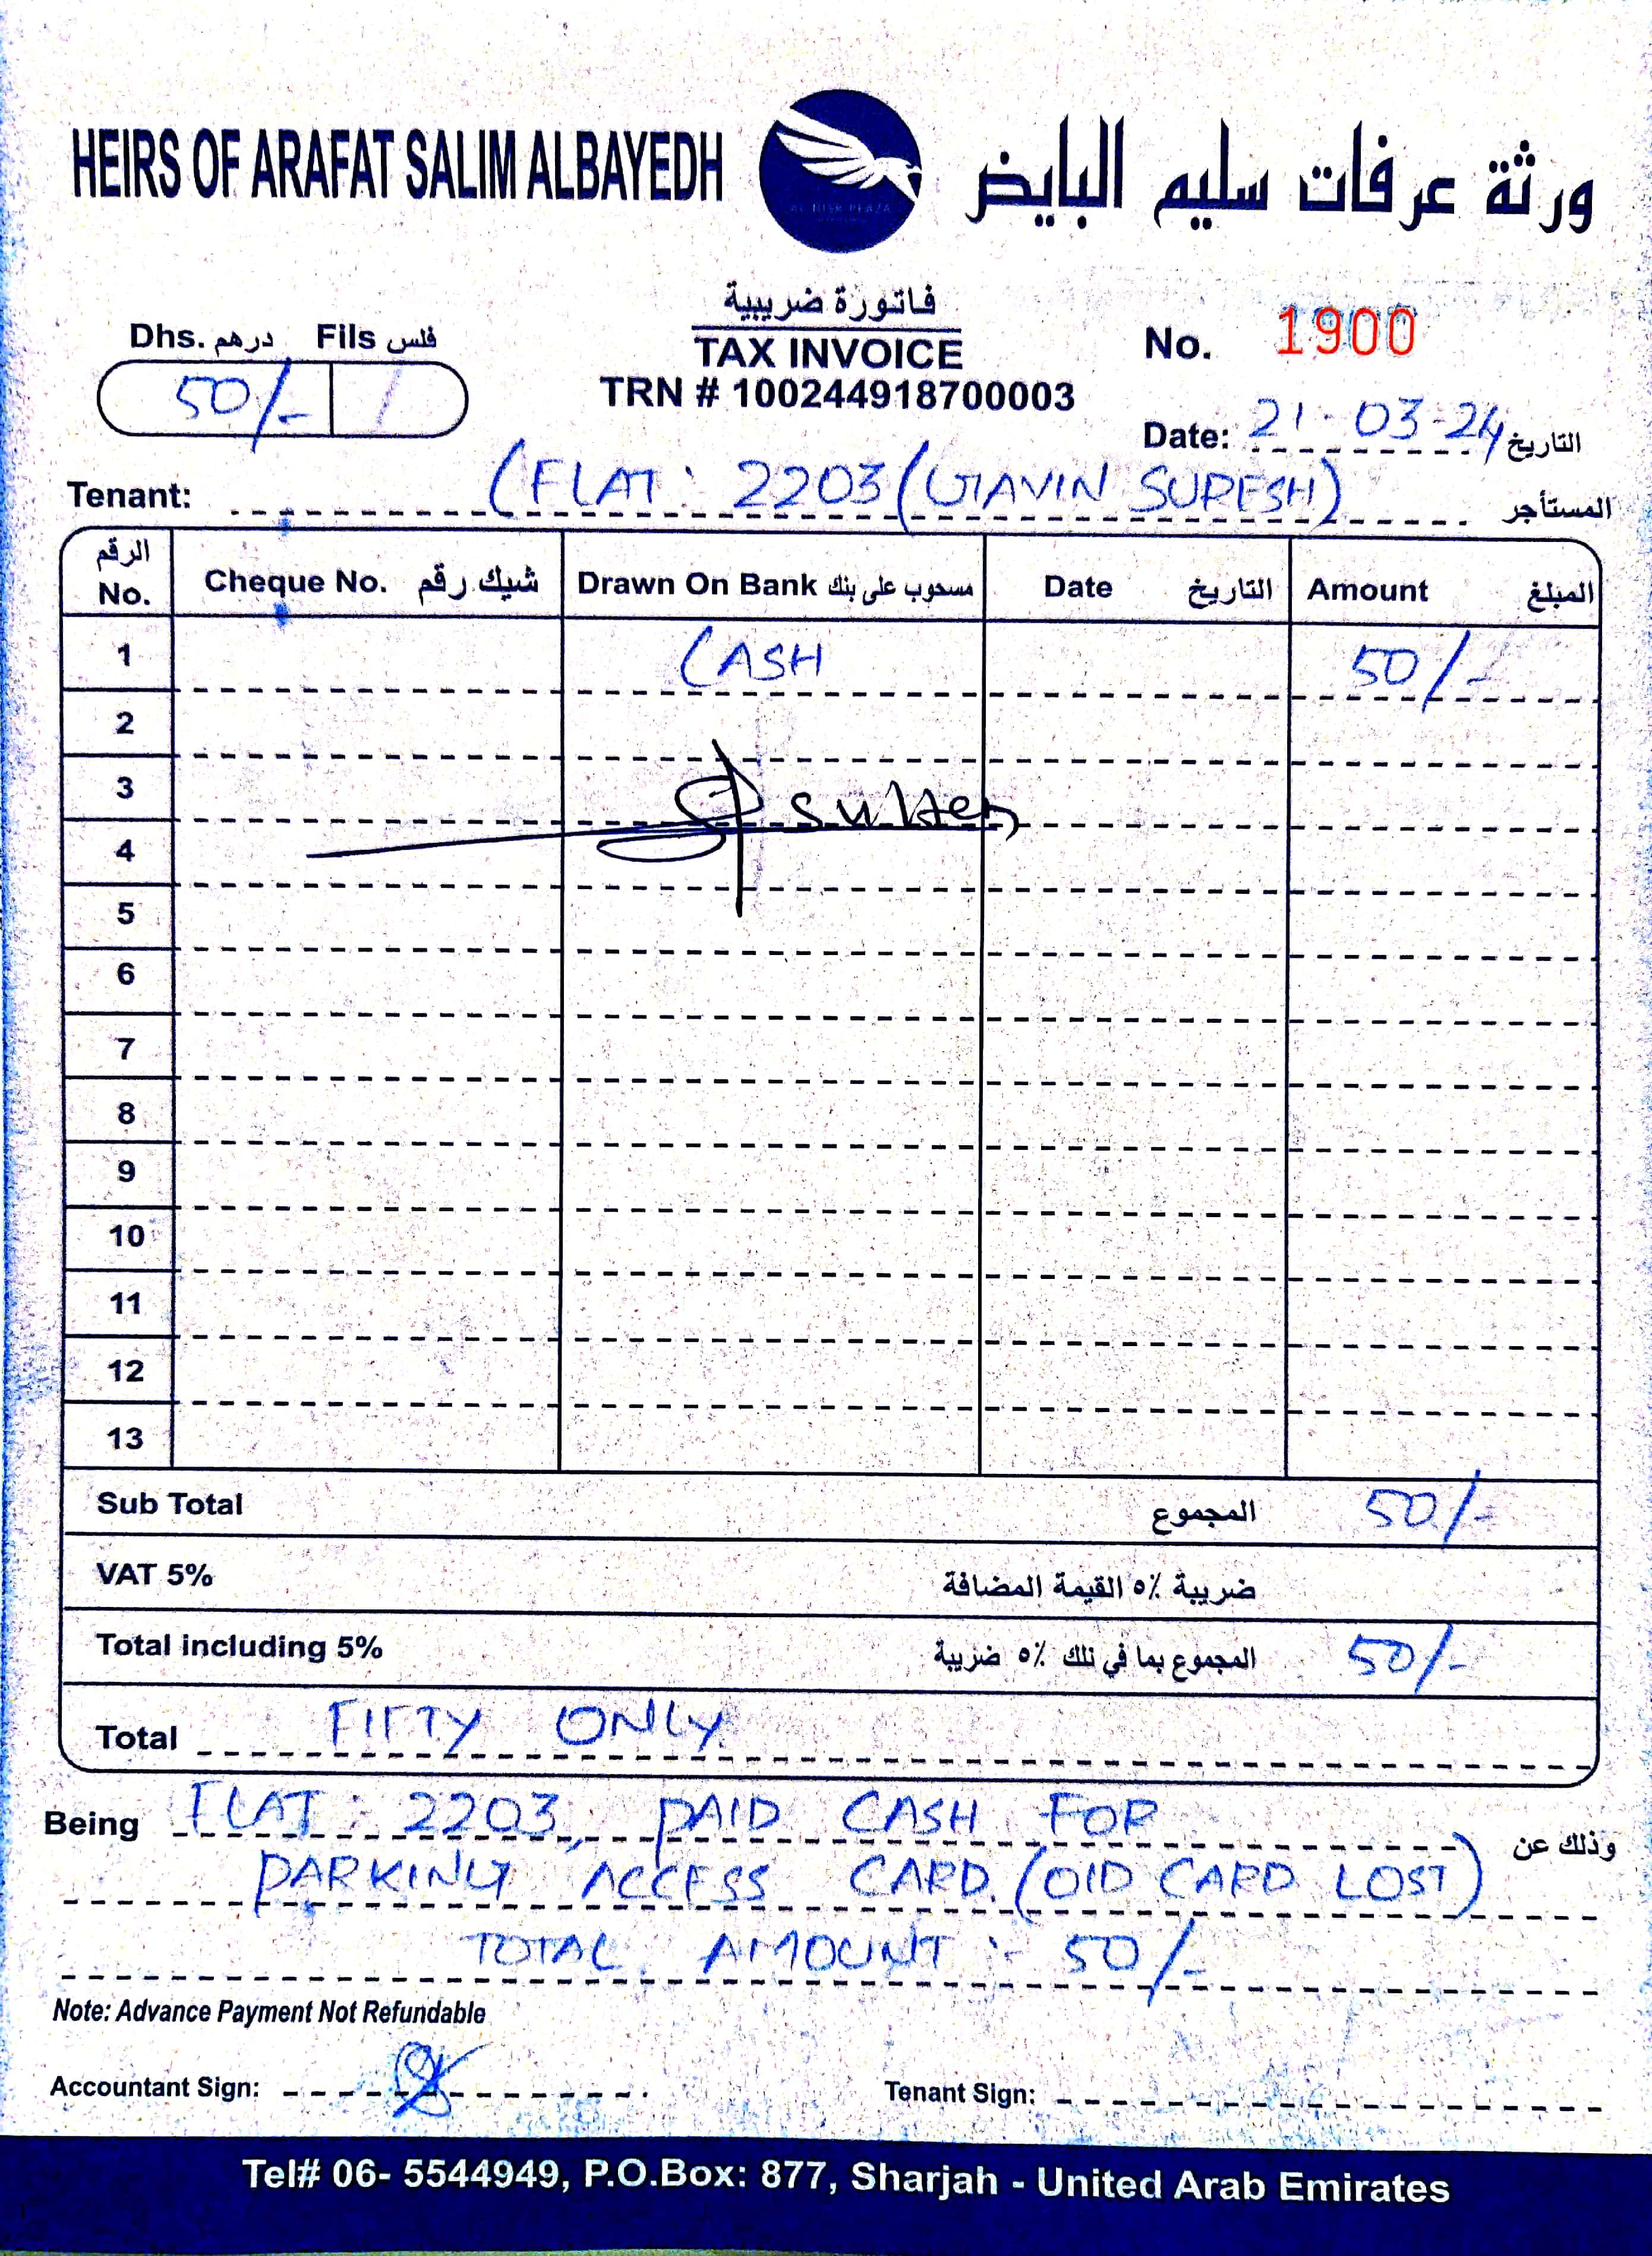 HEIRS OF ARAFAT SALIM ALBAYEDH
ورثة عرفات سليم البايض
AL NISR PLAZA
Dhs. درهم Fils فلس
50/- /
فاتورة ضريبية
TAX INVOICE
TRN # 100244918700003
No. 1900
Date: 21-03-24 التاريخ
Tenant: (FLAT: 2203 (GAVIN SURESH) المستأجر
الرقم No. Cheque No. شيك رقم Drawn On Bank مسحوب على بنك Date التاريخ Amount المبلغ
1 CASH 50/-
2
3
4
5
6
7
8
9
10
11
12
13
Sub Total المجموع 50/-
VAT 5% ضريبة ٥٪ القيمة المضافة
Total including 5% المجموع بما في ذلك ٥٪ ضريبة 50/-
Total FIFTY ONLY
Being FLAT: 2203, PAID CASH FOR وذلك عن
PARKING ACCESS CARD. (OLD CARD LOST)
TOTAL AMOUNT :- 50/-
Note: Advance Payment Not Refundable
Accountant Sign:
Tenant Sign:
Tel# 06- 5544949, P.O.Box: 877, Sharjah - United Arab Emirates